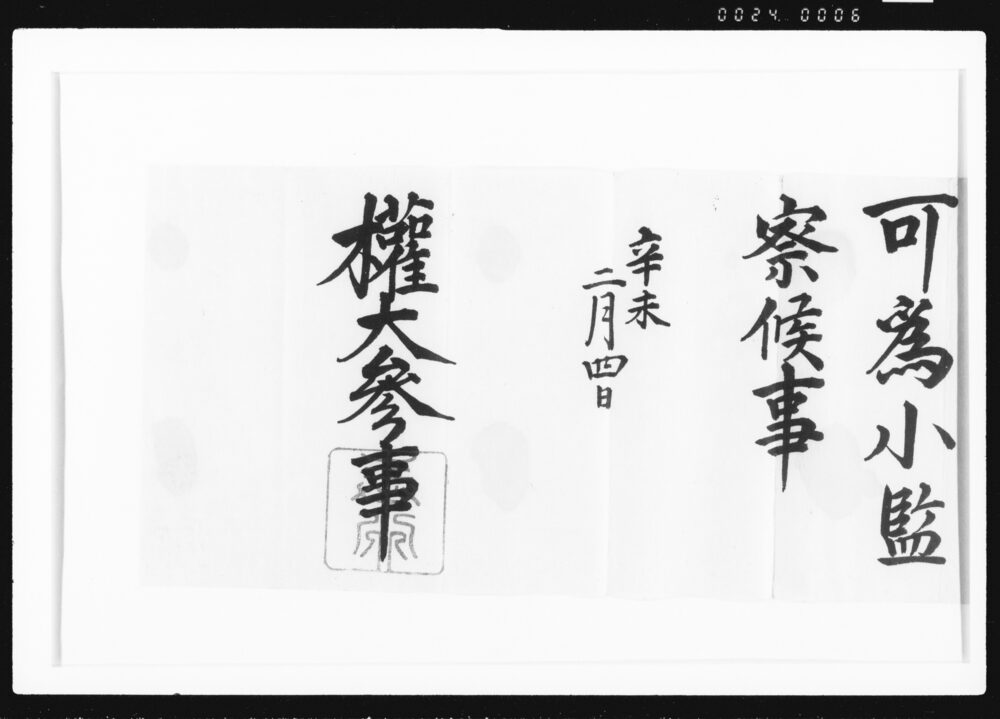 0024 0006
可為小監
察候事
辛未
二月四日
權大參事